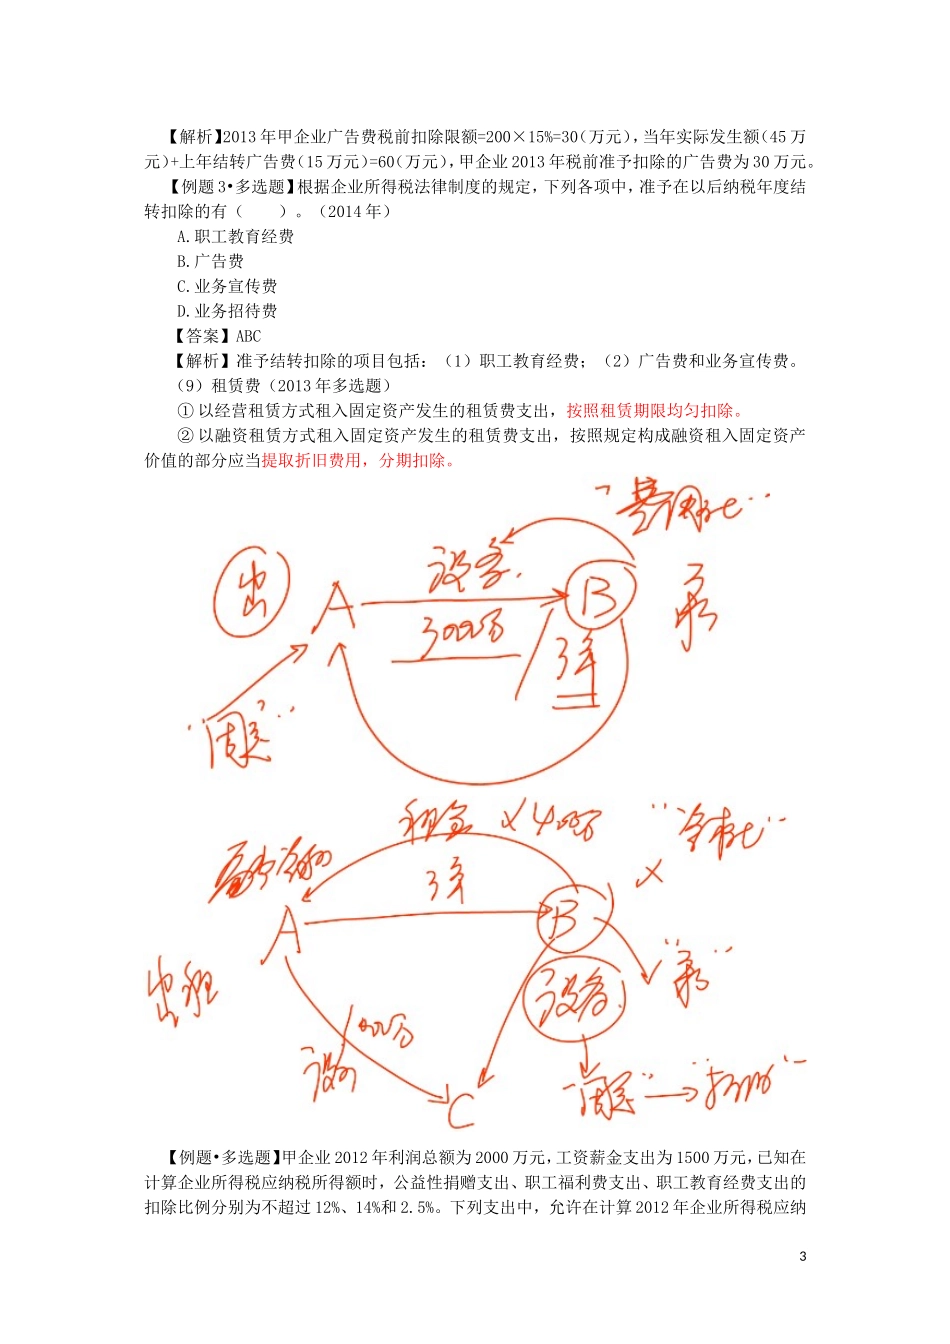 【解析】2013 年甲企业广告费税前扣除限额=200×15%=30(万元),当年实际发生额(45 万
元)+上年结转广告费(15 万元)=60(万元),甲企业 2013 年税前准予扣除的广告费为 30 万元。
【例题 3•多选题】根据企业所得税法律制度的规定,下列各项中,准予在以后纳税年度结
转扣除的有(　　)。(2014 年)
A.职工教育经费
B.广告费
C.业务宣传费
D.业务招待费
【答案】ABC
【解析】准予结转扣除的项目包括:(1)职工教育经费;(2)广告费和业务宣传费。
(9)租赁费(2013 年多选题)
①以经营租赁方式租入固定资产发生的租赁费支出,按照租赁期限均匀扣除。
②以融资租赁方式租入固定资产发生的租赁费支出,按照规定构成融资租入固定资产
价值的部分应当提取折旧费用,分期扣除。
出
A
设备
B
3年
租金
3年
A
B
出租
设备
C
【例题•多选题】甲企业 2012 年利润总额为 2000 万元,工资薪金支出为 1500 万元,已知在
计算企业所得税应纳税所得额时,公益性捐赠支出、职工福利费支出、职工教育经费支出的
扣除比例分别为不超过 12%、14%和 2.5%。下列支出中,允许在计算 2012 年企业所得税应纳
3